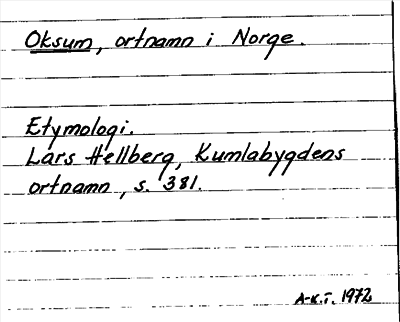 Oksum, ortnamn i Norge.
Etymologi.
Lars Hellberg, Kumlabygdens
ortnamn, s. 381.
A-K.T. 1972